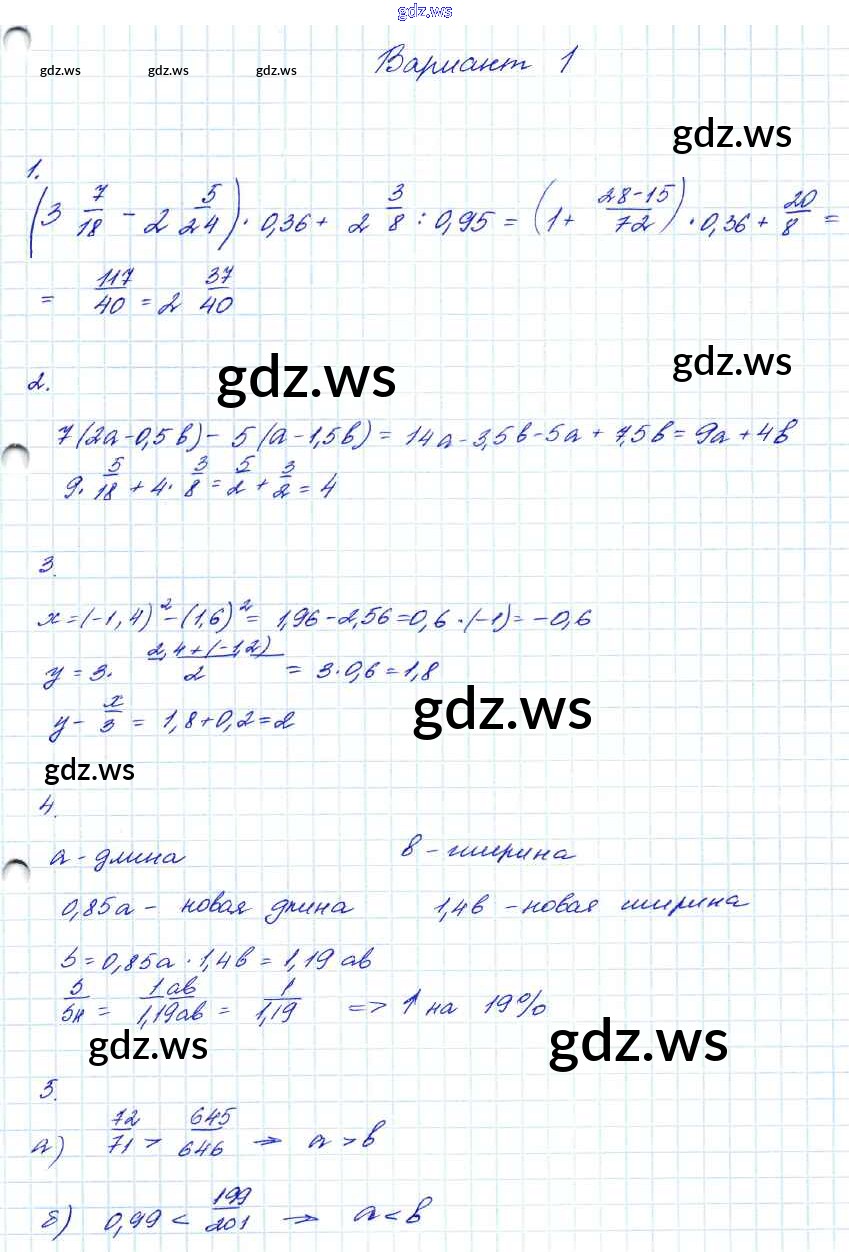 gdz.ws
Вариант 1
gdz.ws gdz.ws gdz.ws
gdz.ws
1.
(3 7/18 - 2 5/24) · 0,36 + 2 3/8 : 0,95 = (1 + (28-15)/72) · 0,36 + 20/8 =
= 117/40 = 2 37/40
gdz.ws
2.
gdz.ws
7(2a-0,5b) - 5(a-1,5b) = 14a-3,5b-5a+7,5b = 9a+4b
9 · 5/18 + 4 · 3/8 = 5/2 + 3/2 = 4
3.
x = (-1,4)² - (1,6)² = 1,96 - 2,56 = 0,6 · (-1) = -0,6
y = 3 · (2,4+(-1,2))/2 = 3 · 0,6 = 1,8
gdz.ws
y - x/3 = 1,8 + 0,2 = 2
gdz.ws
4.
a - длина в - ширина
0,85a - новая длина 1,4в - новая ширина
S = 0,85a · 1,4в = 1,19 aв
S/Sн = 1aв/1,19aв = 1/1,19 => ↑ на 19%
gdz.ws
gdz.ws
5.
а) 72/71 > 645/646 → a > b
б) 0,99 < 199/201 → a < b